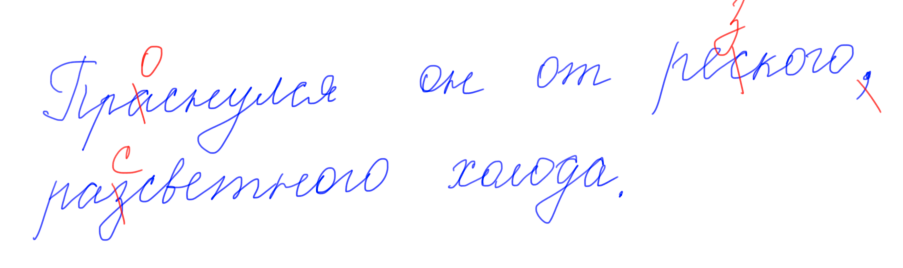 о з
Праснулся он от реского,
с
разсветного холода.